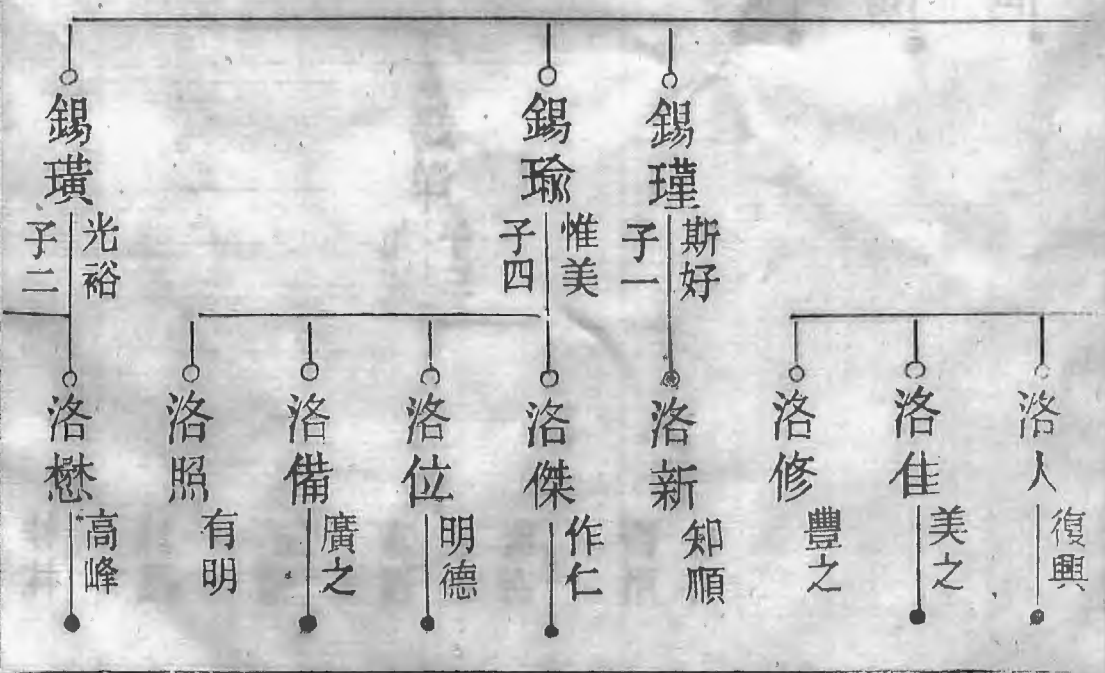 錫瑾
斯好
子一
錫瑜
惟美
子四
錫璜
光裕
子二
洛人
復興
洛佳
美之
洛修
豐之
洛新
知順
洛傑
作仁
洛位
明德
洛備
廣之
洛照
有明
洛懋
高峰